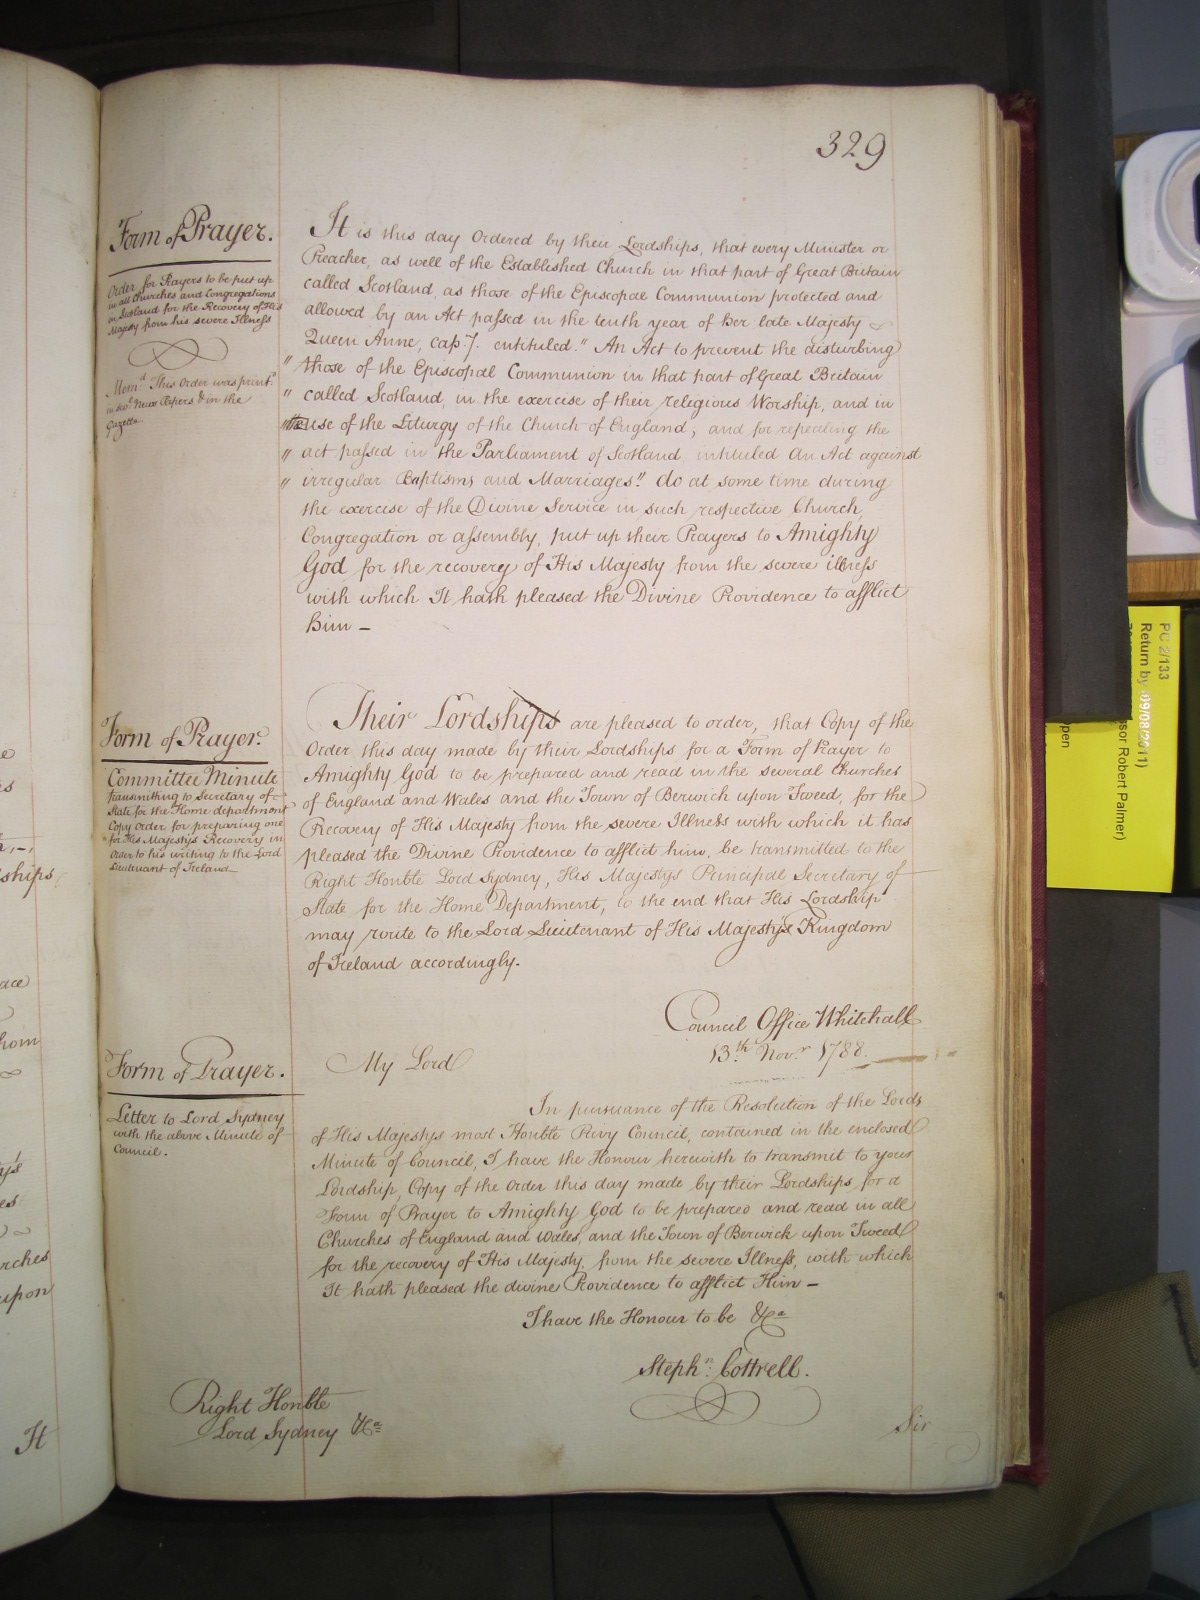 329
Form of Prayer.
Order for Prayers to be put up
in all Churches and Congregations
in Scotland for the Recovery of His
Majesty from his severe Illness
Mem.d This Order was print.d
in sev.l News Papers & in the
Gazette
It is this day Ordered by their Lordships, that every Minister or
Preacher, as well of the Established Church in that part of Great Britain
called Scotland, as those of the Episcopal Communion protected and
allowed by an Act passed in the tenth year of Her late Majesty
Queen Anne, cap. 7. entituled. "An Act to prevent the disturbing
" those of the Episcopal Communion in that part of Great Britain
" called Scotland, in the exercise of their religious Worship, and in
" the use of the Liturgy of the Church of England; and for repealing the
" act passed in the Parliament of Scotland intituled An Act against
" irregular Baptisms and Marriages." do at some time during
the exercise of the Divine Service in such respective Church,
Congregation or assembly, put up their Prayers to Amighty
God for the recovery of His Majesty from the severe illness
with which It hath pleased the Divine Providence to afflict
him –
Form of Prayer.
Committee Minute
transmitting to Secretary of
State for the Home department
Copy order for preparing one
for His Majestys Recovery in
Order to his writing to the Lord
Lieutenant of Ireland
Their Lordships are pleased to order, that Copy of the
Order this day made by their Lordships for a Form of Prayer to
Amighty God to be prepared and read in the several Churches
of England and Wales and the Town of Berwick upon Tweed, for the
Recovery of His Majesty from the severe Illness with which it has
pleased the Divine Providence to afflict him, be transmitted to the
Right Honble Lord Sydney, His Majestys Principal Secretary of
State for the Home Department, to the end that His Lordship
may write to the Lord Lieutenant of His Majesty's Kingdom
of Ireland accordingly.
Council Office Whitehall
13.th Nov.r 1788.
Form of Prayer.
Letter to Lord Sydney
with the above Minute of
Council.
My Lord
In pursuance of the Resolution of the Lords
of His Majestys most Honble Privy Council, contained in the enclosed
Minute of Council, I have the Honour herewith to transmit to your
Lordship, Copy of the Order this day made by their Lordships, for a
Form of Prayer to Amighty God to be prepared and read in all
Churches of England and Wales, and the Town of Berwick upon Tweed
for the recovery of His Majesty, from the severe Illness, with which
It hath pleased the divine Providence to afflict Him –
I have the Honour to be &ca
Steph.n Cottrell.
Right Honble
Lord Sydney &ca
Sir
ships
ace
hom
es
rches
upon
It
PC 2/133
Return by (09/08/2011)
ssor Robert Palmer)
pen